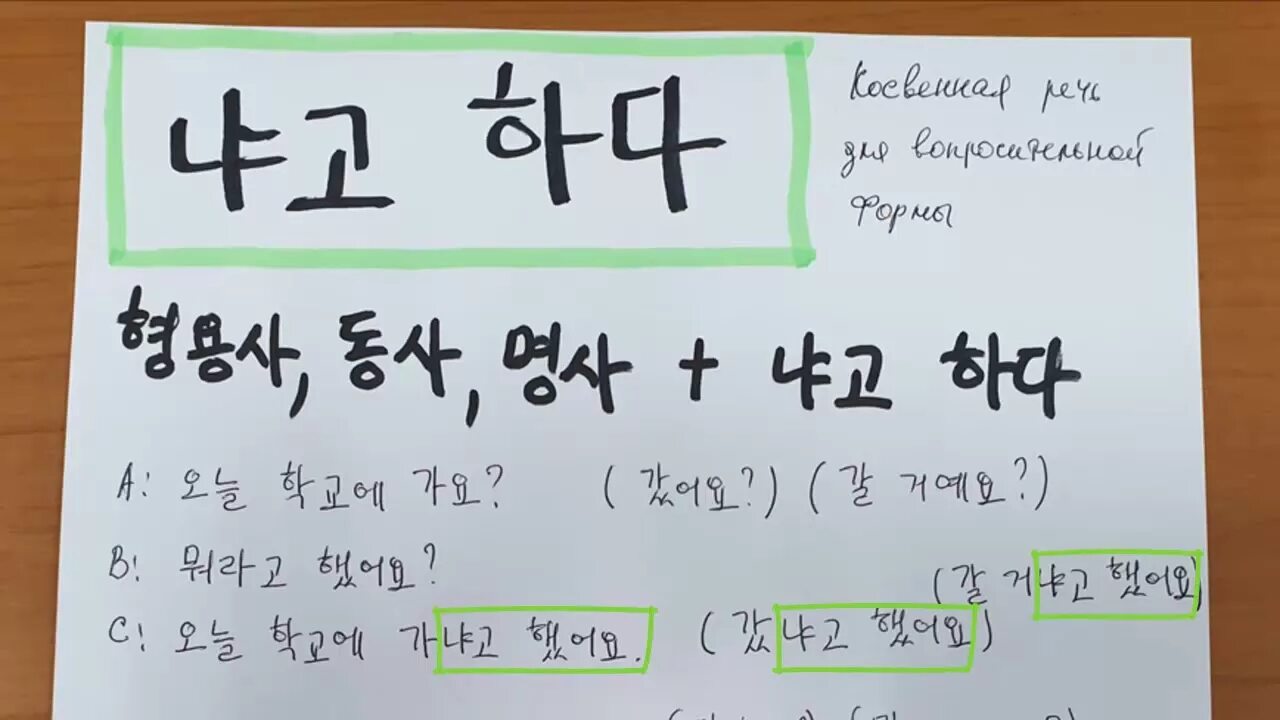 냐고 하다
Косвенная речь
для вопросительной
формы
형용사, 동사, 명사 + 냐고 하다
A: 오늘 학교에 가요? (갔어요?) (갈 거예요?)
B: 뭐라고 했어요?
(갈 거냐고 했어요)
C: 오늘 학교에 가냐고 했어요. (갔냐고 했어요)